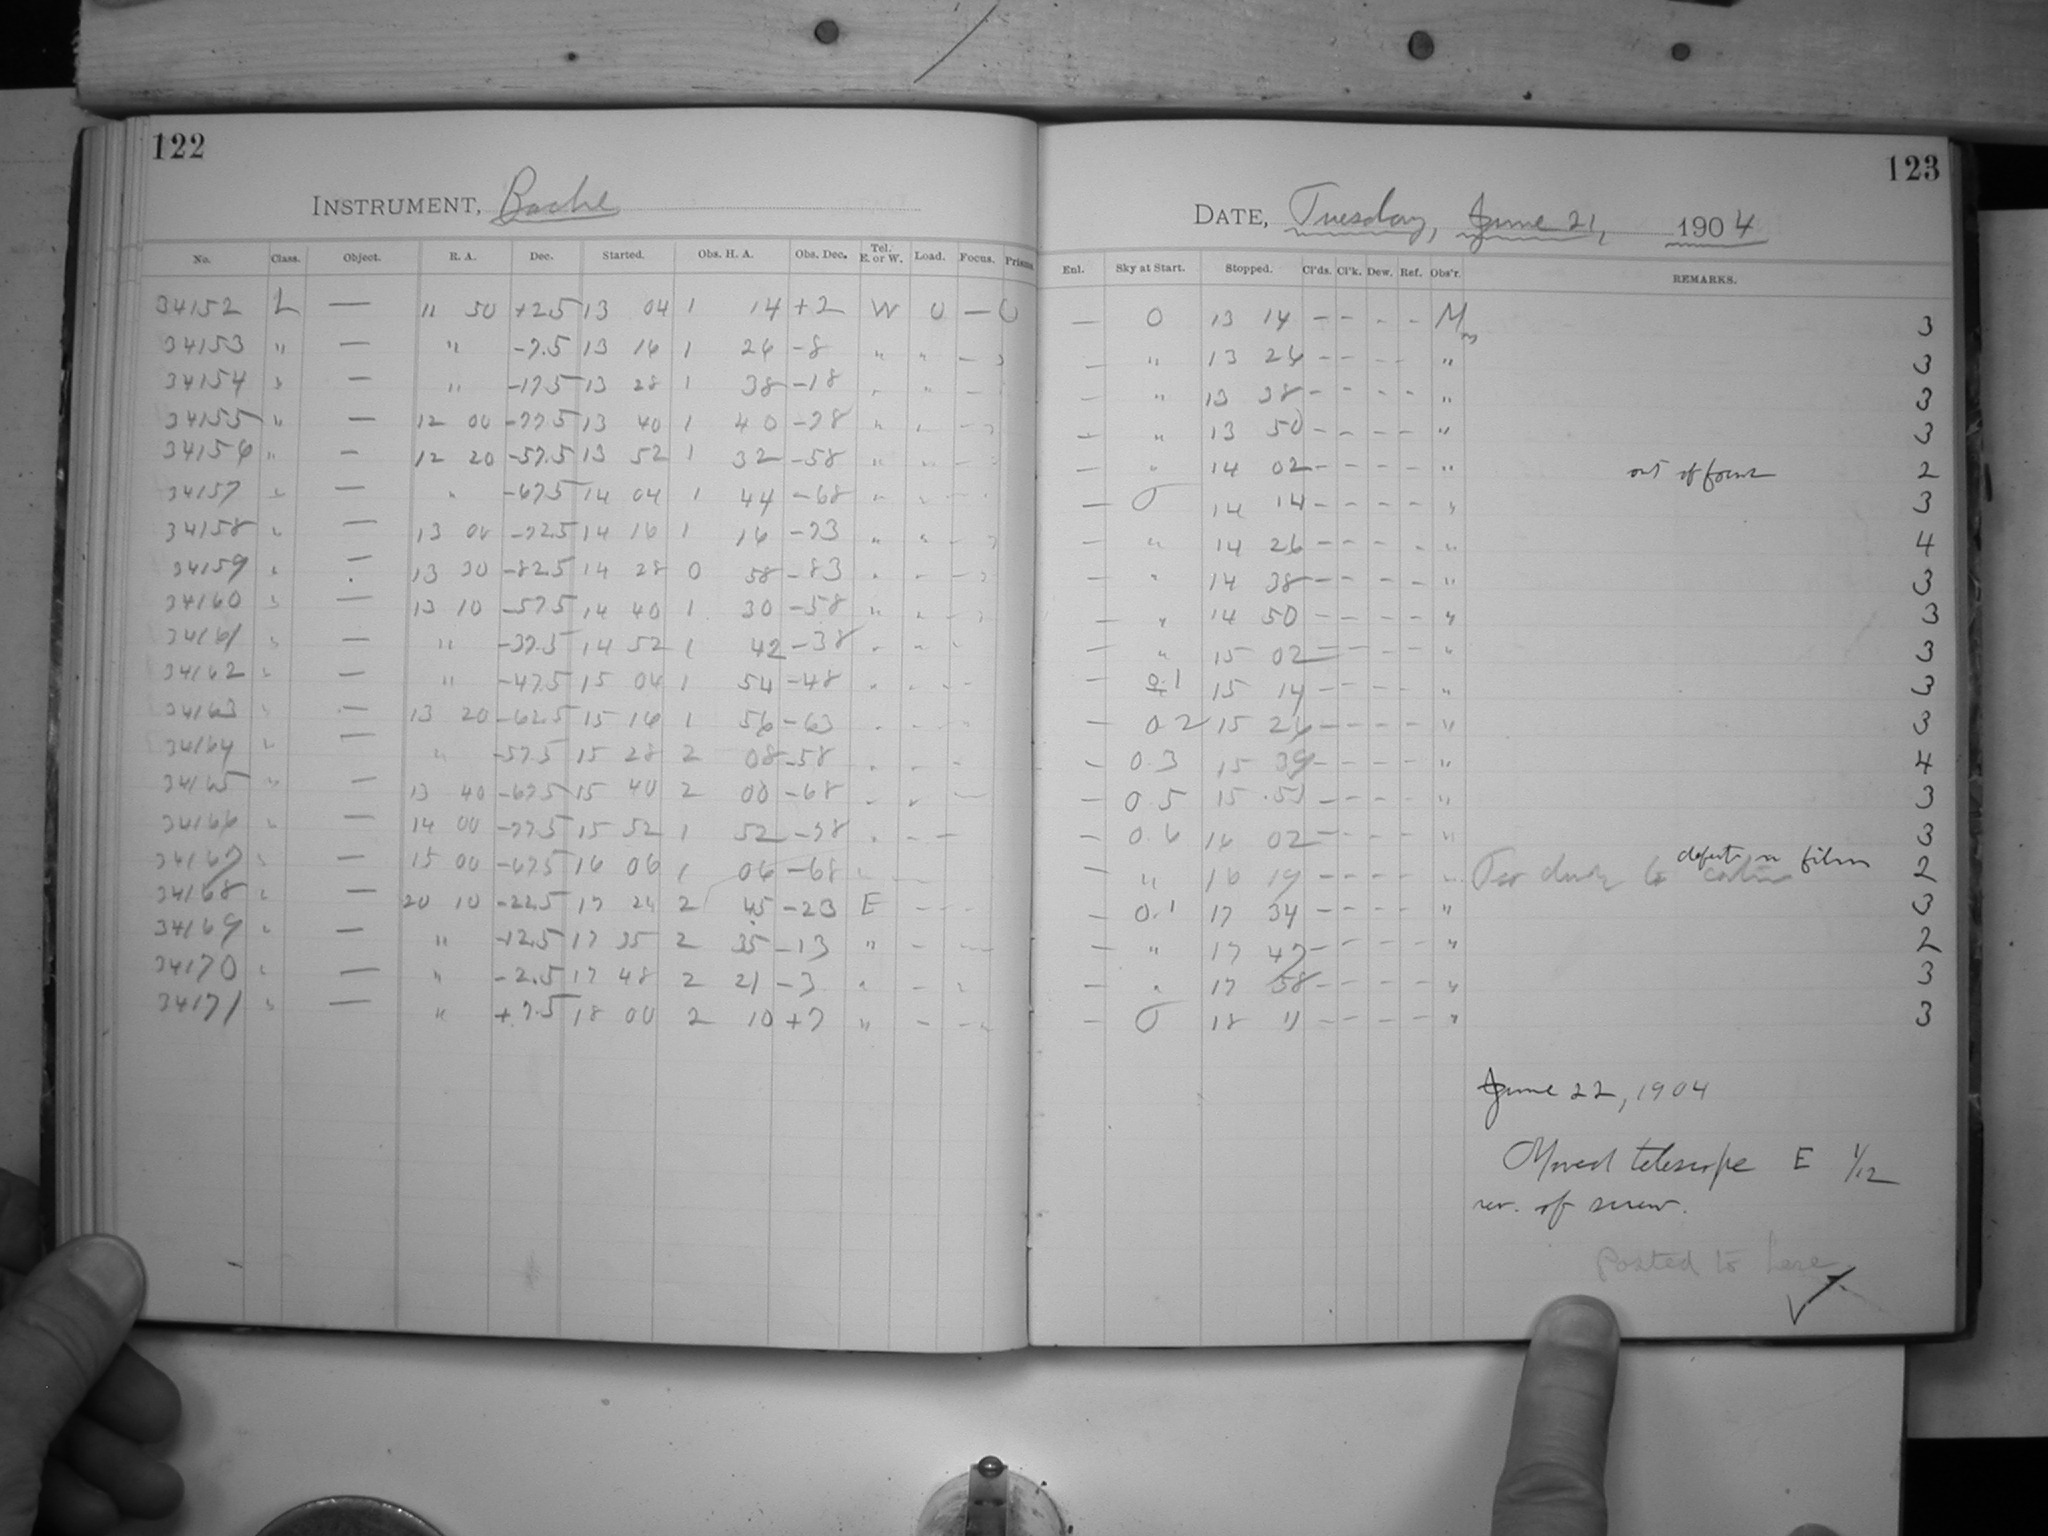 122
INSTRUMENT, Bache
No. Class. Object. R. A. Dec. Started. Obs. H. A. Obs. Dec. Tel. E. or W. Load. Focus. Prisms.
34152 L — 11 50 +2.5 13 04 1 14 +2 W 0 — 0
34153 " — " -7.5 13 16 1 26 -8 " " — "
34154 " — " -17.5 13 28 1 38 -18 " " —
34155 " — 12 00 -77.5 13 40 1 40 -78 " " — "
34156 " — 12 20 -57.5 13 52 1 32 -58 " " — "
34157 " — " -67.5 14 04 1 44 -68 " " — "
34158 " — 13 00 -72.5 14 16 1 16 -73 " " — "
34159 " — 13 30 -82.5 14 28 0 58 -83 " " — "
34160 " — 13 10 -57.5 14 40 1 30 -58 " " — "
34161 " — " -37.5 14 52 1 42 -38 " " "
34162 " — " -47.5 15 04 1 54 -48 " " —
34163 " — 13 20 -62.5 15 16 1 56 -63 " " "
34164 " — " -57.5 15 28 2 08 -58 " " "
34165 " — 13 40 -67.5 15 40 2 00 -68 " " —
34166 " — 14 00 -77.5 15 52 1 52 -78 " — —
34167 " — 15 00 -67.5 16 06 1 06 -68 " —
34168 " — 20 10 -22.5 17 24 2 45 -23 E — —
34169 " — " -12.5 17 35 2 35 -13 " — —
34170 " — " -2.5 17 48 2 21 -3 " — "
34171 " — " +7.5 18 00 2 10 +7 " — — "
123
DATE, Tuesday, June 21, 1904
Enl. Sky at Start. Stopped. Cl'ds. Cl'k. Dew. Ref. Obs'r. REMARKS.
— 0 13 14 — — — — M 3
— " 13 26 — — — — " 3
— " 13 38 — — — — " 3
— " 13 50 — — — — " 3
— " 14 02 — — — — " out of focus 2
— 0 14 14 — — — — " 3
— " 14 26 — — — — " 4
— " 14 38 — — — — " 3
— " 14 50 — — — — " 3
— " 15 02 — — — — " 3
— 0.1 15 14 — — — — " 3
— 0.2 15 26 — — — — " 3
— 0.3 15 39 — — — — " 4
— 0.5 15 51 — — — — " 3
— 0.6 16 02 — — — — " 3
— " 16 19 — — — — " defect in film 2
— 0.1 17 34 — — — — " 3
— " 17 47 — — — — " 2
— " 17 58 — — — — " 3
— 0 18 11 — — — — " 3
June 22, 1904
Moved telescope E 1/12
rev. of screw.
posted to here